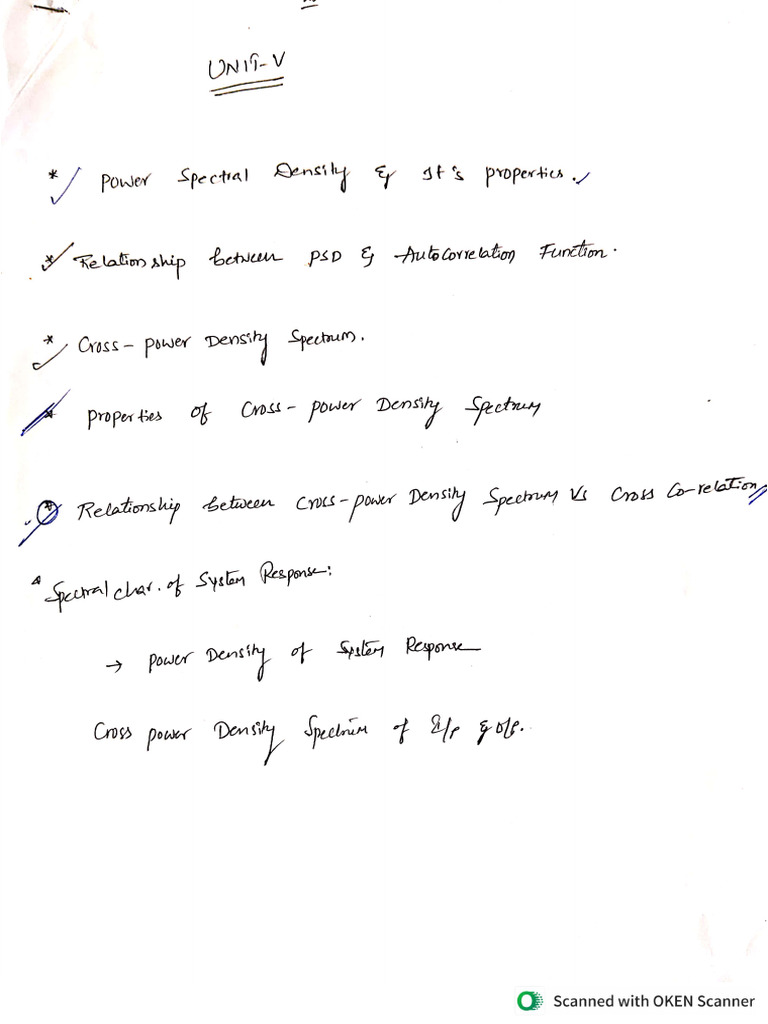 UNIT-V
* Power Spectral Density & It's properties.
* Relationship between PSD & Autocorrelation Function.
* Cross-power Density Spectrum.
* properties of Cross-power Density Spectrum
* Relationship between Cross-power Density Spectrum Vs Cross Co-relation
* Spectral char. of System Response:
→ power Density of System Response
Cross power Density Spectrum of I/p & o/p.
Scanned with OKEN Scanner